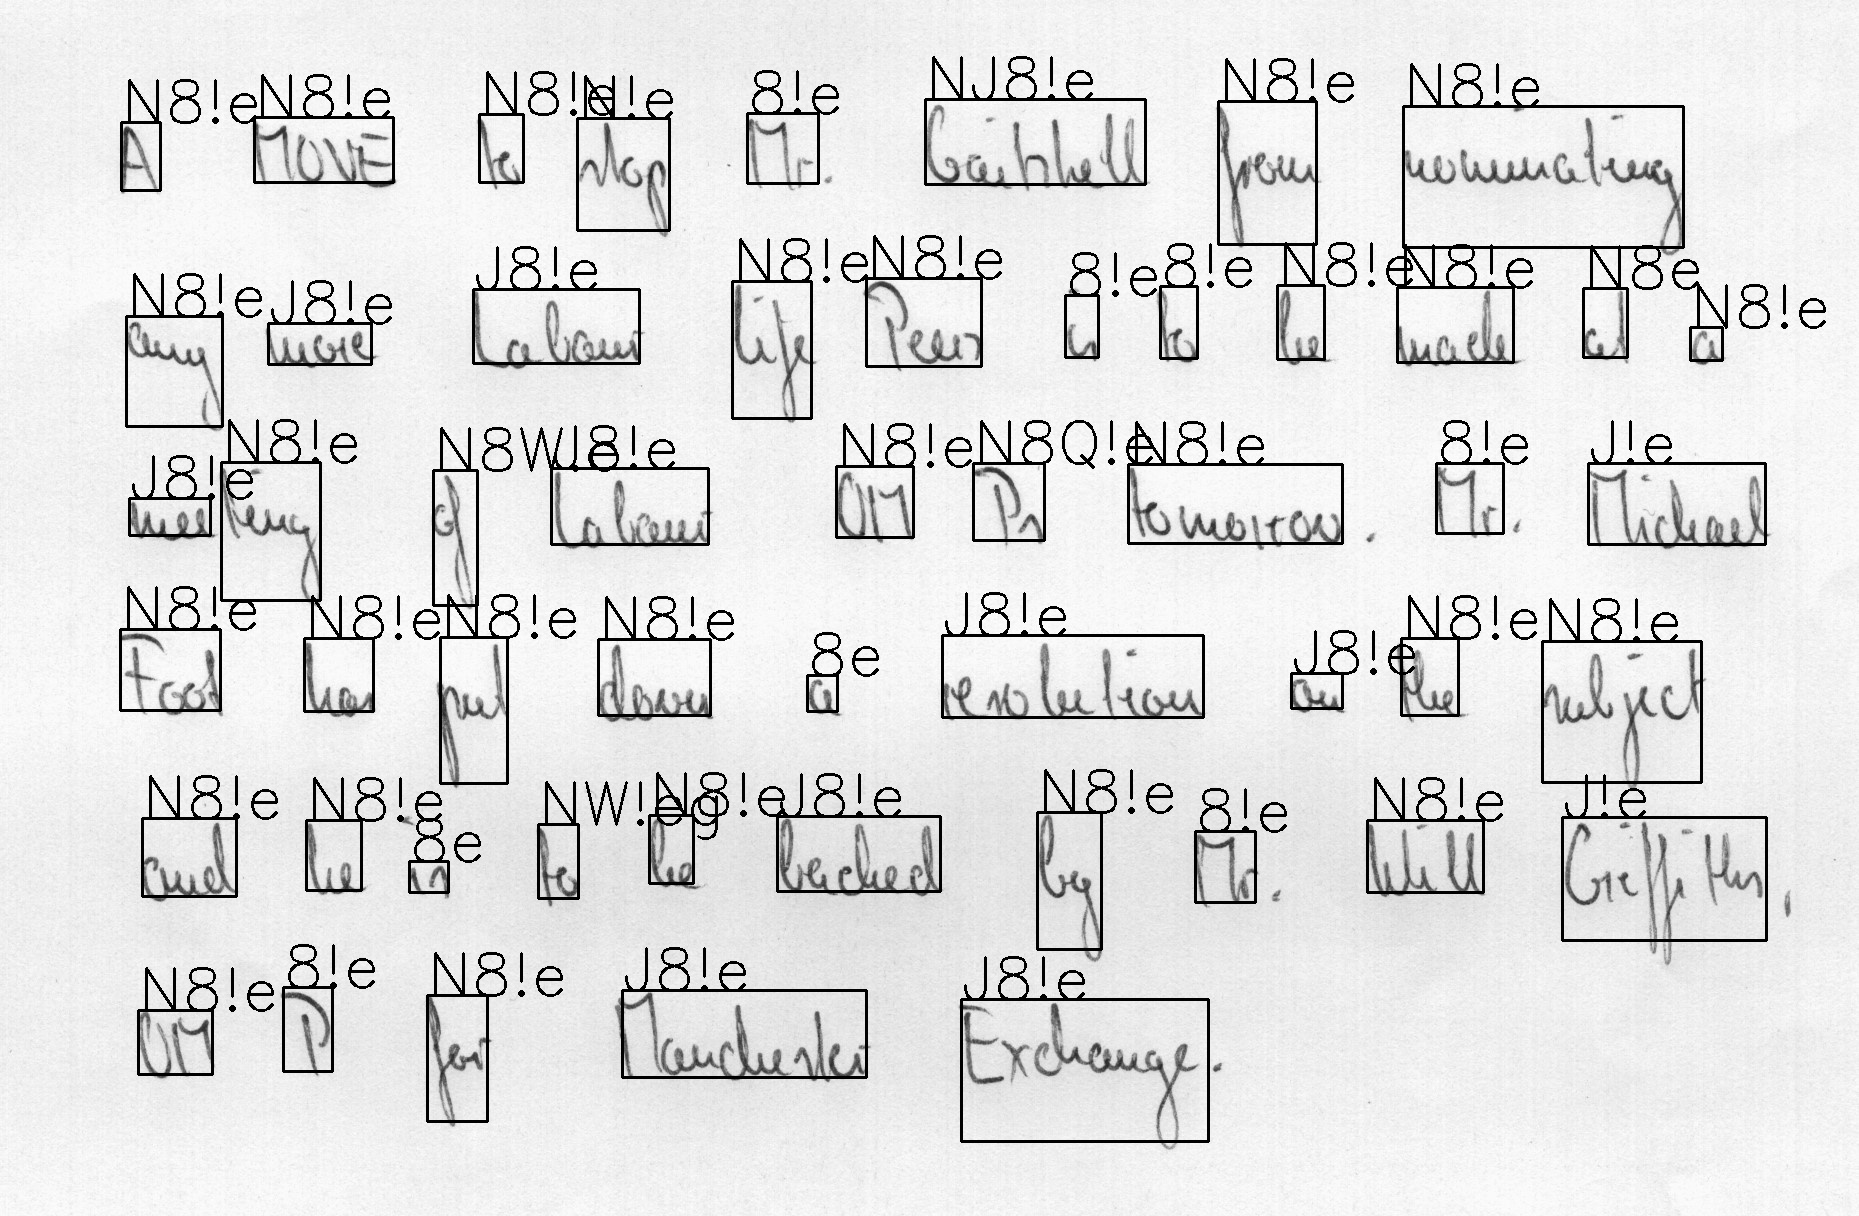 N8!e N8!e N8!e N!e 8!e NJ8!e N8!e N8!e
A MOVE to stop Mr. Gaitskell from nominating
N8!e J8!e J8!e N8!e N8!e 8!e 8!e N8!e N8!e N8e N8!e
any more Labour life Peers is to be made at a
J8!e N8!e N8W!e J8!e N8!e N8Q!e N8!e 8!e J!e
meeting of Labour OM Ps tomorrow. Mr. Michael
N8!e N8!e N8!e N8!e 8e J8!e J8!e N8!e N8!e
Foot has put down a resolution on the subject
N8!e N8!e 8e NW!eg N8!e J8!e N8!e 8!e N8!e J!e
and he is to be backed by Mr. Will Griffiths,
N8!e 8!e N8!e J8!e J8!e
OM P for Manchester Exchange.